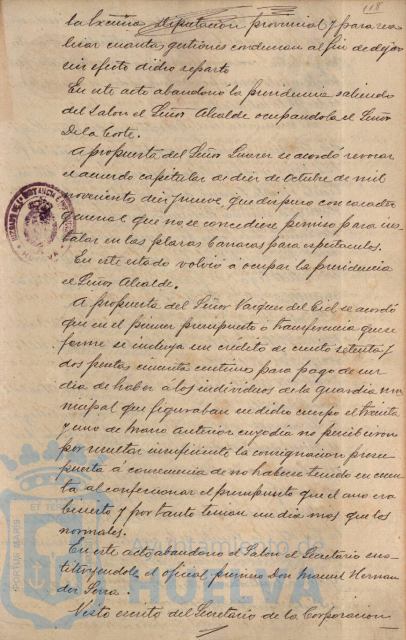 118
la Excma Diputación provincial y para rea-
lizar cuantas gestiones conduzcan al fin de dejar
sin efecto dicho reparto
En este acto abandonó la presidencia saliendo
del Salon el Señor Alcalde ocupandola el Señor
De la Corte.
A propuesta del Señor Suarez se acordó revocar
el acuerdo capitular de diez de Octubre de mil
novecientos diez y nueve que dispuso con caracter
general que no se concediese permiso para ins-
talar en las plazas barracas para espectaculos.
En este estado volvió á ocupar la presidencia
el Señor Alcalde.
A propuesta del Señor Vazquez del Cid se acordó
que en el primer presupuesto ó transferencia que se
forme se incluya un crédito de ciento setenta y
dos pesetas cincuenta centimos para pago de un
dia de haber á los individuos de la guardia mu-
nicipal que figuraban en dicho cuerpo el treinta
y uno de Marzo Anterior cuyo dia no percibieron
por resultar insuficiente la consignación presu-
puesta á consecuencia de no haberse tenido en cuen-
ta al confeccionar el presupuesto que el año era
bisiesto y por tanto tenia un dia mas que los
normales.
En este acto abandonó el Salon el Secretario sus-
tituyendole el oficial primero Don Manuel Hernan-
dez Serra.
Visto escrito del Secretario de la Corporacion
Ayuntamiento de
HUELVA
PORTUS MARIS ET TER